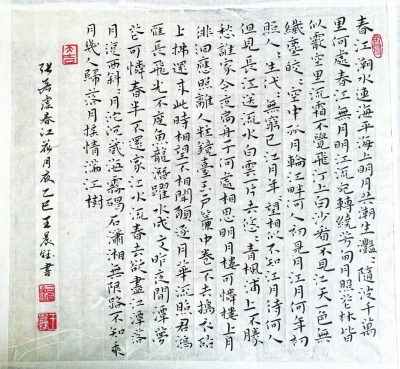 春江潮水連海平海上明月共潮生灩〻隨波千萬
里何處春江無月明江流宛轉繞芳甸月照花林皆
似霰空里流霜不覺飛汀上白沙看不見江天一色無
纖塵皎〻空中孤月輪江畔何人初見月江月何年初
照人〻生代〻無窮已江月年〻望相似不知江月待何人
但見長江送流水白雲一片去悠〻青楓浦上不勝
愁誰家今夜扁舟子何處相思明月樓可憐樓上月
徘徊應照離人妝鏡臺玉戶簾中卷不去擣衣砧
上拂還來此時相望不相聞願逐月華流照君鴻
雁長飛光不度魚龍潛躍水成文昨夜閒潭夢落
花可憐春半不還家江水流春去欲盡江潭落
月復西斜〻月沉〻藏海霧碣石瀟湘無限路不知乘
月幾人歸落月搖情滿江樹
張若虛春江花月夜乙巳王晨鈺書